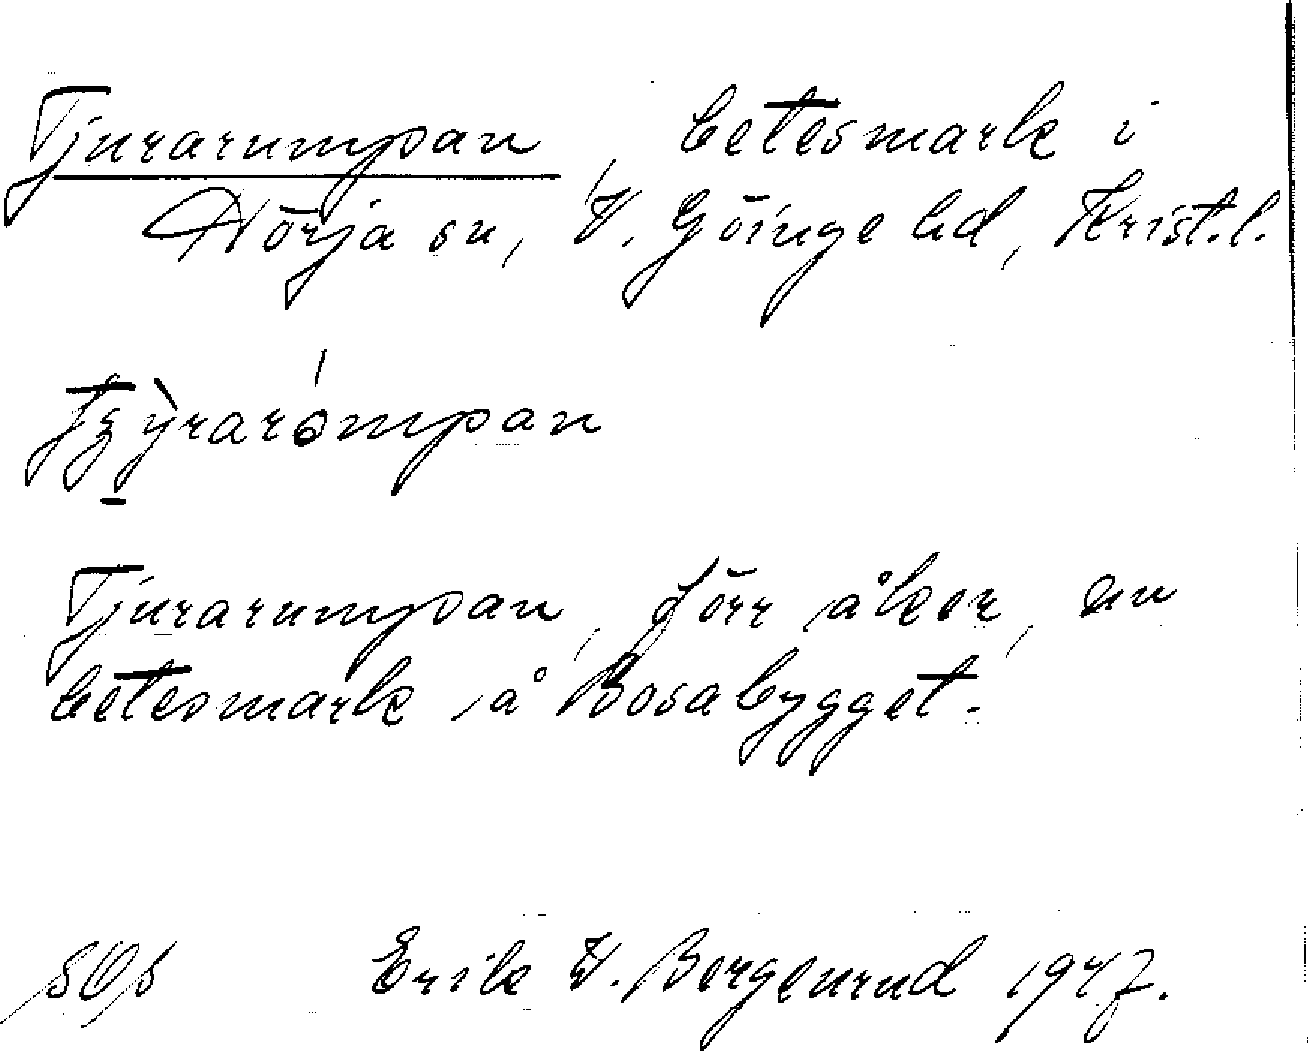 Tjurarumpan, betesmark i
Nörja sn, V. Göinge hd, Krist.l.
Tjurarumpan, förr åker, nu
betesmark å Bosabygget.
Erik V. Borgenrud 1947.